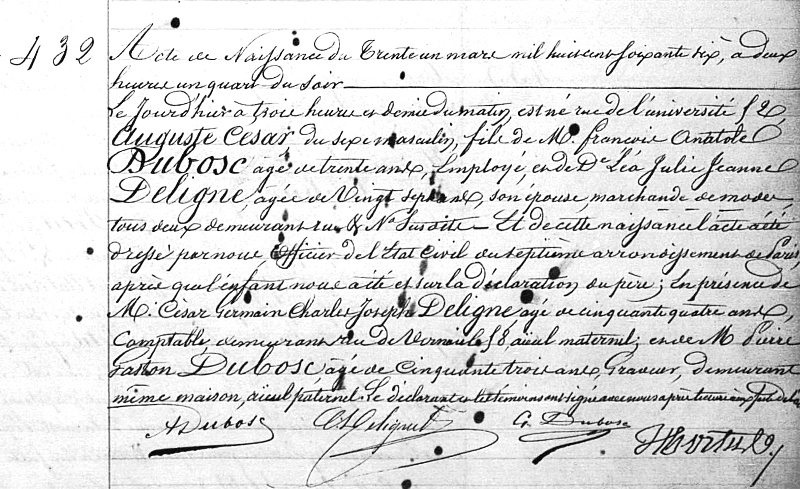 432
Acte de Naissance du Trente un mars mil huit cent soixante six, à deux
heures un quart du soir
Le Jourd'hier à trois heures et demie du matin, est né rue de l'université 52,
Auguste César du sexe masculin, fils de M. françois Anatole
Dubosc agé de trente ans, Employé, et de De Léa Julie Jeanne
Deligne, agée de Vingt sept ans, son épouse, marchande de modes,
tous deux demeurant rue & No Susdite – Et de cette naissance l'acte a été
dressé par nous Officier de l'Etat Civil du septième arrondissement de Paris,
après que l'enfant nous a été et sur la déclaration du père; En présence de
M. César Germain Charles Joseph Deligne agé de cinquante quatre ans,
Comptable, demeurant rue de Verneuil 58 aieul maternel; et de M Pierre
gaston Dubosc agé de Cinquante trois ans, Graveur, demeurant
même maison, aieul paternel. Le déclarant et les témoins ont signé avec nous après lecture
ADubosc
Deligne
G. Dubosc